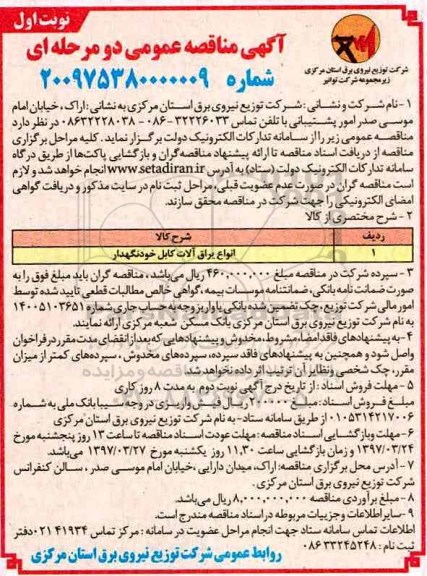 نوبت اول
آگهی مناقصه عمومی دو مرحله ای
شماره ۲۰۰۹۷۵۳۸۰۰۰۰۰۰۹
شرکت توزیع نیروی برق استان مرکزی
زیرمجموعه شرکت توانیر
۱- نام شرکت و نشانی: شرکت توزیع نیروی برق استان مرکزی به نشانی: اراک، خیابان امام
موسی صدر امور پشتیبانی با تلفن تماس ۳۲۲۲۶۰۳۳-۰۸۶ - ۰۸۶۳۲۲۲۸۰۳۸ در نظر دارد
مناقصه عمومی زیر را از سامانه تدارکات الکترونیک دولت برگزار نماید. کلیه مراحل برگزاری
مناقصه از دریافت اسناد مناقصه تا ارائه پیشنهاد مناقصه گران و بازگشایی پاکت‌ها از طریق درگاه
سامانه تدارکات الکترونیک دولت (ستاد) به آدرس www.setadiran.ir انجام خواهد شد و لازم
است مناقصه گران در صورت عدم عضویت قبلی، مراحل ثبت نام در سایت مذکور و دریافت گواهی
امضای الکترونیکی را جهت شرکت در مناقصه محقق سازند.
۲- شرح مختصری از کالا
ردیف شرح کالا
۱ انواع یراق آلات کابل خودنگهدار
۳- سپرده شرکت در مناقصه مبلغ ۴۶۰,۰۰۰,۰۰۰ ریال می‌باشد، مناقصه گران باید مبلغ فوق را به
صورت ضمانت نامه بانکی، ضمانتنامه موسسات بیمه، گواهی خالص مطالبات قطعی تایید شده توسط
امور مالی شرکت توزیع، چک تضمین شده بانکی یا واریز وجه به حساب جاری شماره ۱۴۰۰۵۱۰۳۶۵۱
به نام شرکت توزیع نیروی برق استان مرکزی بانک مسکن شعبه مرکزی ارائه نمایند.
۴- به پیشنهادهای فاقد امضا، مشروط، مخدوش و پیشنهادهایی که بعد از انقضای مدت مقرر در فراخوان
واصل شود و همچنین به پیشنهادهای فاقد سپرده، سپرده‌های مخدوش، سپرده‌های کمتر از میزان
مقرر، چک شخصی و نظایر آن ترتیب اثر داده نخواهد شد.
۵- مهلت فروش اسناد: از تاریخ درج آگهی نوبت دوم به مدت ۸ روز کاری
مبلغ فروش اسناد: مبلغ ریال فیش واریزی در وجه سیبا بانک ملی به شماره
۰۱۰۵۳۱۴۲۱۷۰۰۶ از طریق سامانه ستاد- به نام شرکت توزیع نیروی برق استان مرکزی
۶- مهلت و بازگشایی اسناد مناقصه: مهلت عودت اسناد مناقصه تا ساعت ۱۳ روز پنجشنبه مورخ
۱۳۹۷/۰۳/۲۴ و زمان بازگشایی ساعت ۱۱,۳۰ روز یکشنبه مورخ ۱۳۹۷/۰۳/۲۷ می‌باشد.
۷- آدرس محل برگزاری مناقصه: اراک، میدان دارایی، خیابان امام موسی صدر، سالن کنفرانس
شرکت توزیع نیروی برق استان مرکزی.
۸- مبلغ برآوردی مناقصه ۸,۰۰۰,۰۰۰,۰۰۰ ریال می‌باشد.
۹- سایر اطلاعات و جزییات مربوطه در اسناد مناقصه مندرج است.
اطلاعات تماس سامانه ستاد جهت انجام مراحل عضویت در سامانه: مرکز تماس ۴۱۹۳۴-۰۲۱ دفتر
ثبت نام: ۰۸۶۳۳۲۴۵۲۴۸
روابط عمومی شرکت توزیع نیروی برق استان مرکزی